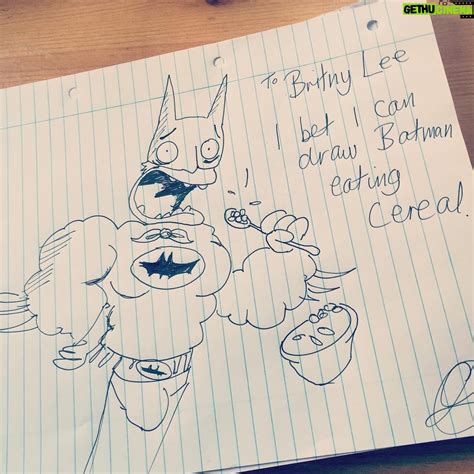 GETHUCINEMA
To Britny Lee
I bet I can
draw Batman
eating
Cereal.
!